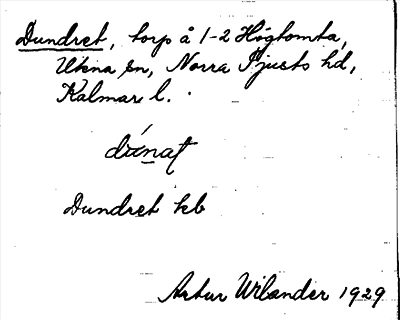 Dundret, torp å 1-2 Högtomta,
Ukna sn, Norra Tjusts hd,
Kalmar l.
dúnat
Dundret kb
Artur Wilander 1929